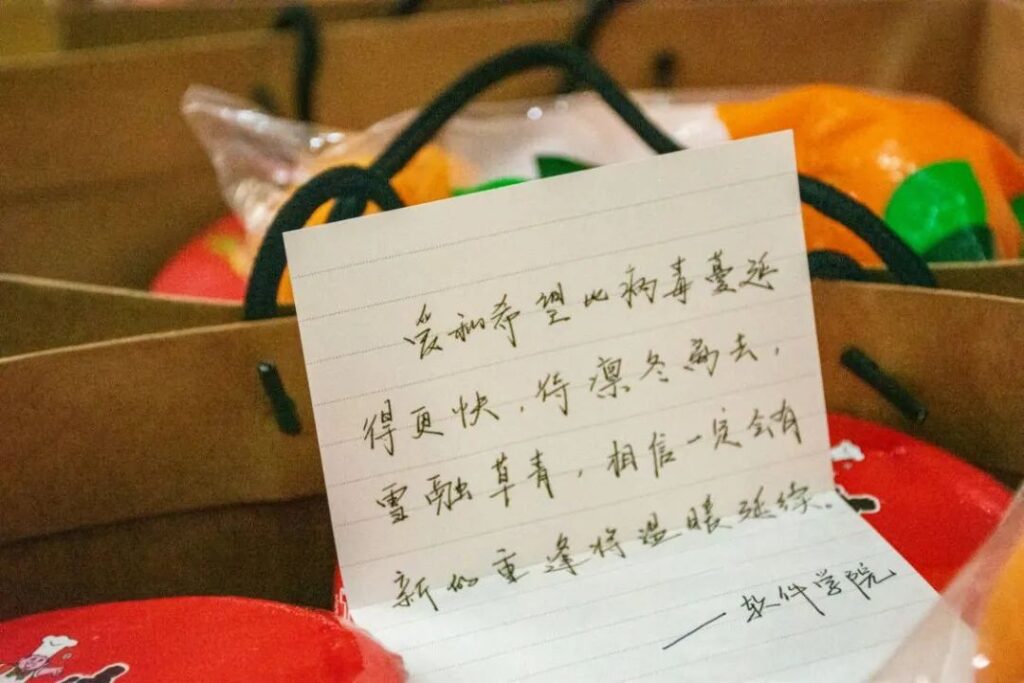 爱和希望比病毒蔓延
得更快，待凛冬离去，
雪融草青，相信一定会有
新的重逢将温暖延续。
—软件学院